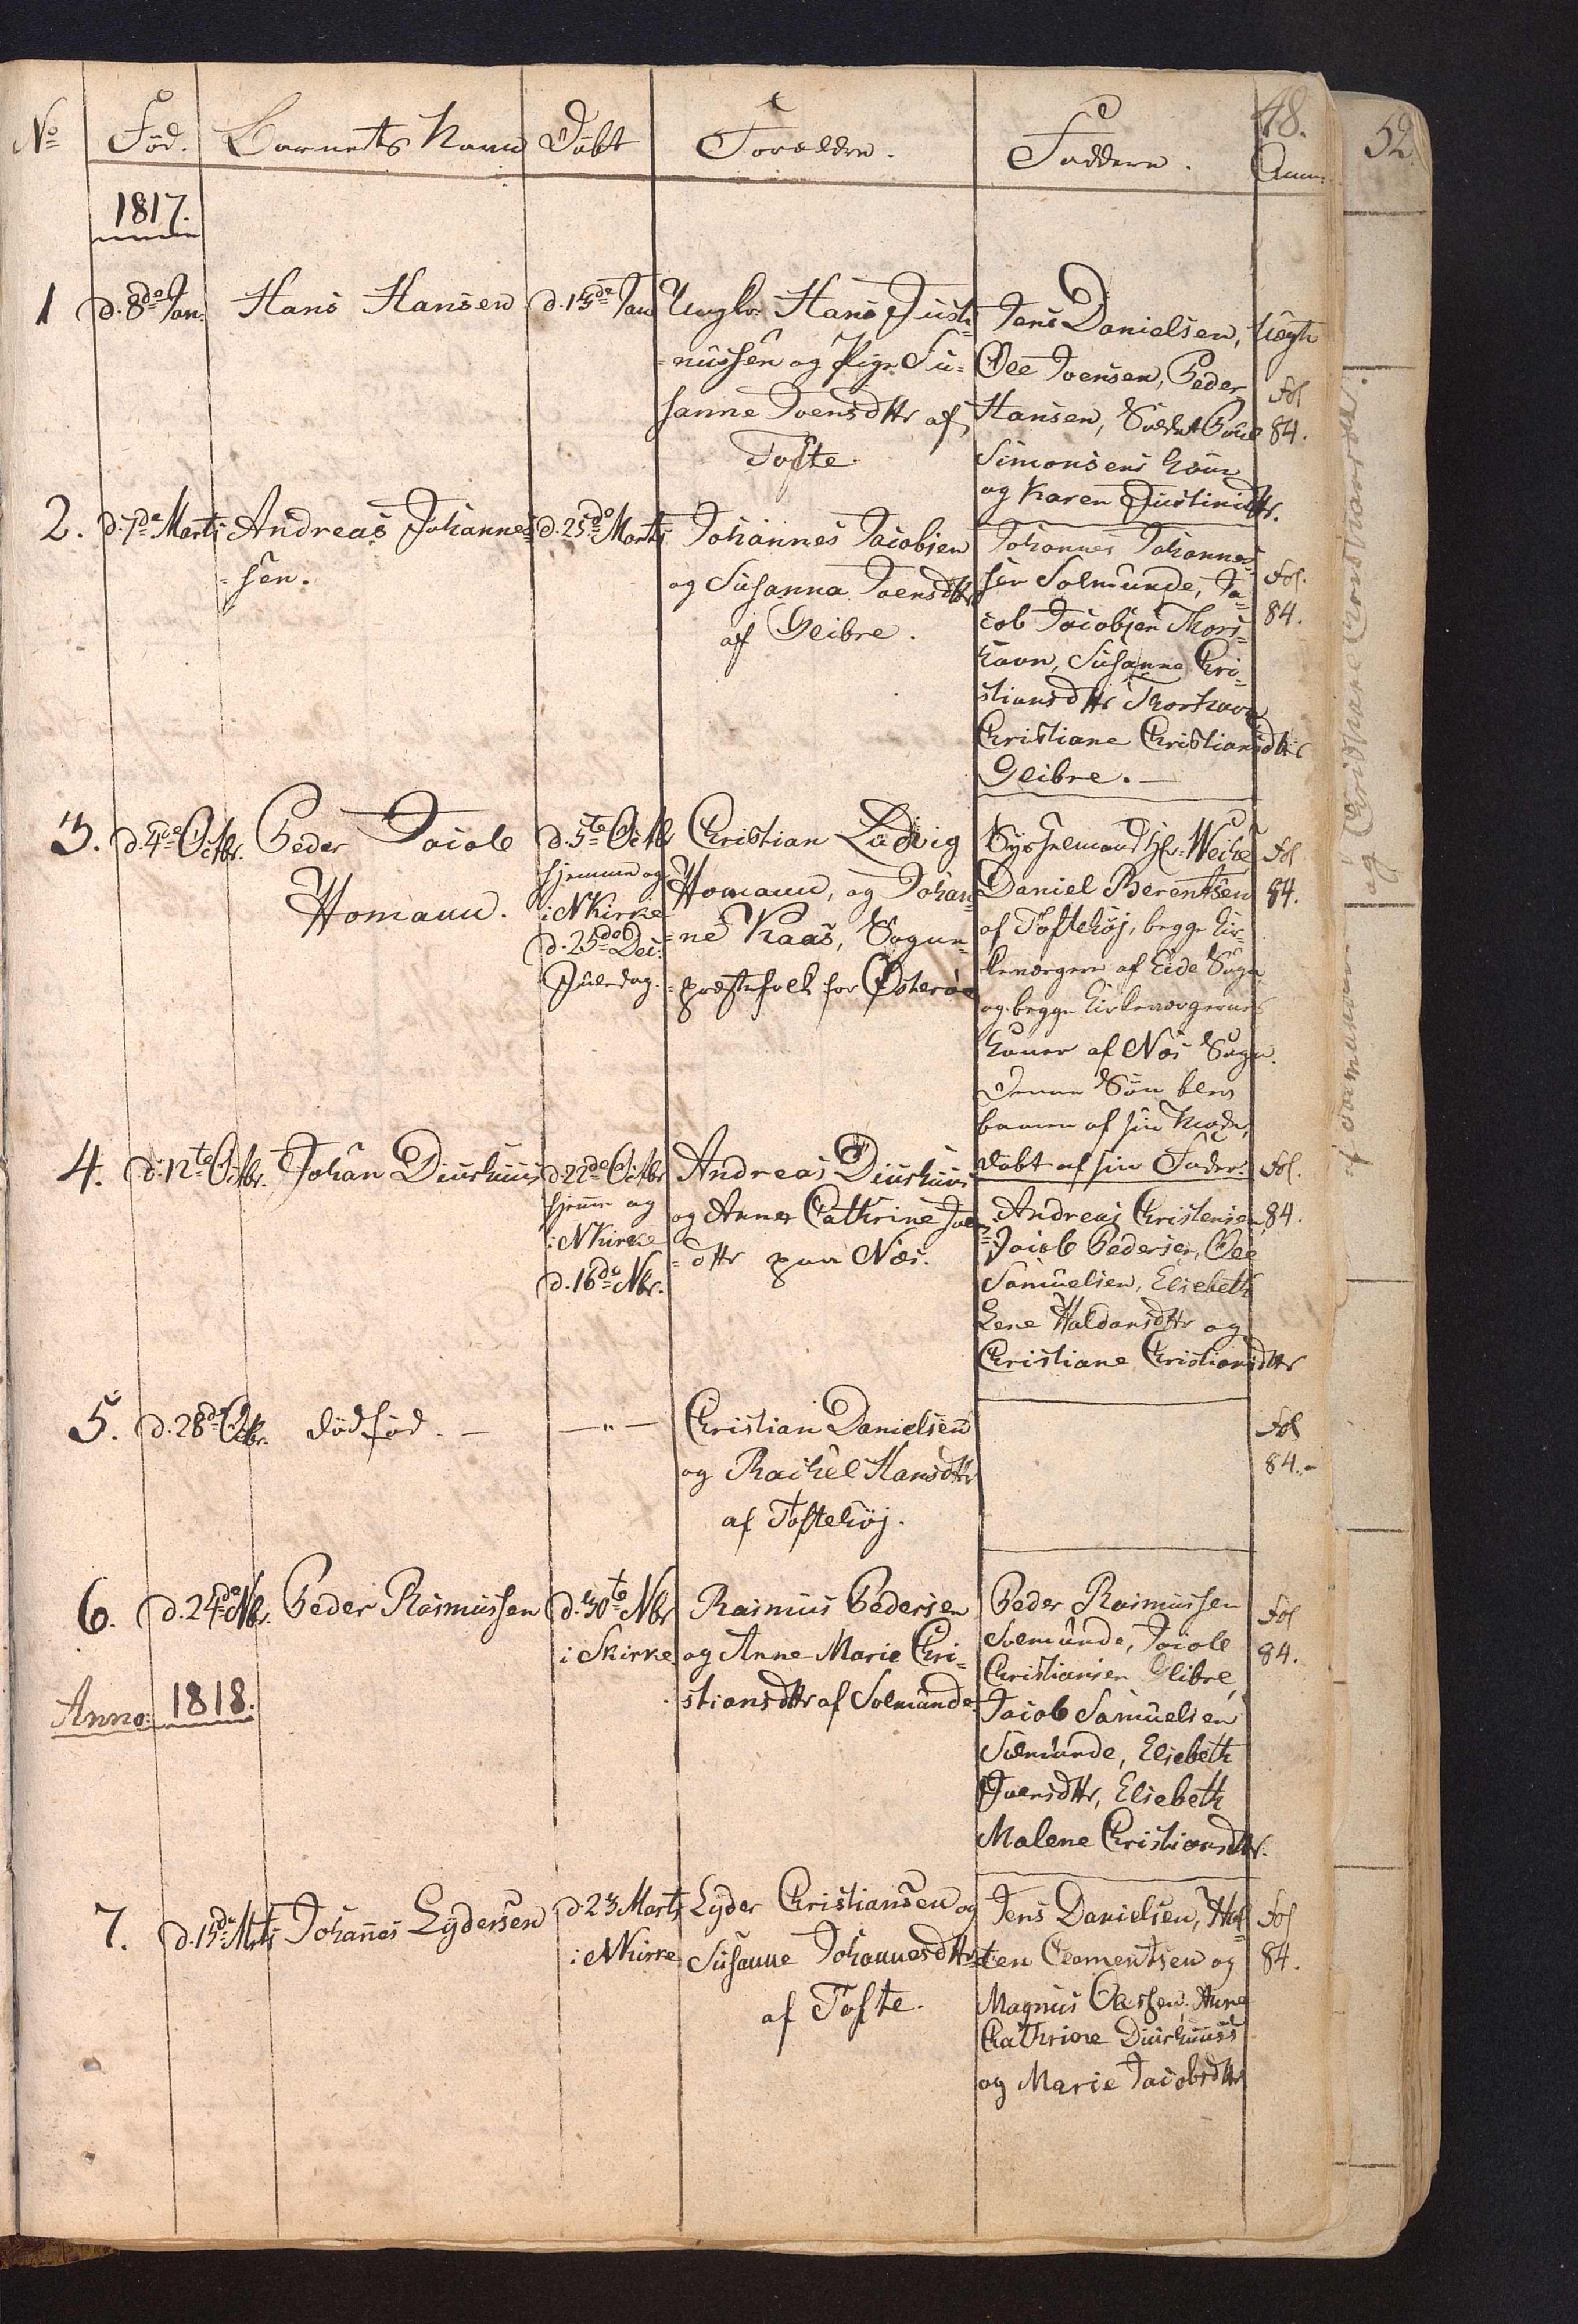 48.
52.
No Fød. Barnets Navn Døbt Forældre. Faddere. Anm:
1817.
1 d. 8de Jan: Hans Hansen d. 15de Jan Ungk: Hans Justi-
nussen og Pige Su-
sanne Joensdttr af
Tofte.
Jens Danielsen,
Ole Joensen, Peder
Hansen, Poul
Simonsens Kone
og Karen Justinidttr.
Uægte
Fol
84.
2. d. 7de Marti Andreas Johannes-
sen.
d. 25de Marti
Johannes Jacobsen
og Susanna Joensdttr
af Glibre.
Johannes Johannes-
sen Solmunde, Ja-
cob Jacobsen Thors-
havn, Susanne Chri-
stiansdttr Thorshavn
Christiane Christiansdttr
Glibre.
Fol.
84.
3. d. 4de Octbr. Peder Jacob
Homann.
d. 5te Octb
hjemme og
i NKirke
d. 25de Dec:
Juledag.
Christian Ludvig
Homann, og Johan-
ne Kaas, Sogne-
præstefolk for Østerøe
Sysselmand Hr: Weihe
Daniel Berentsen
af Toftehøj, begge Kir-
keværgere af Eide Sogn
og begge Kirkeværgernes
Koner af Næs Sogn.
Denne Søn blev
baaren af sin Moder,
døbt af sin Fader.
Fol
84.
4. d. 12te Octbr. Johan Diurhuus
d. 22de Octbr
hjemme og
i NKirke
d. 16de Nbr.
Andreas Diurhuus
og Anne Cathrine Joens-
dttr paa Næs.
Andreas Christensen,
Jacob Pedersen, Ole
Samuelsen, Elsebeth
Lene Haldansdttr og
Christiane Christiansdttr
Fol.
84.
5. d. 28de Octbr. dødfød. — — " —
Christian Danielsen
og Rachel Hansdttr
af Toftehøj.
Fol
84.-
6. d. 24de Nbr. Peder Rasmussen d. 30te Nbr
i SKirke
Rasmus Pedersen
og Anne Marie Chri-
stiansdttr af Solmunde.
Peder Rasmussen
Solmunde, Jacob
Christiansen Glibre,
Jacob Samuelsen
Solmunde, Elsebeth
Joensdttr, Elsebeth
Malene Christiansdttr.
Fol
84.
Anno: 1818.
7. d. 15de Mrti Johannes Lydersen d. 23 Marti
i NKirke
Lyder Christiansen og
Susanne Johannesdttr
af Tofte.
Jens Danielsen, Hal-
ten Clementsen og
Magnus Olesen, Anne
Cathrine Diurhuus
og Marie Jacobsdttr
Fol
84.